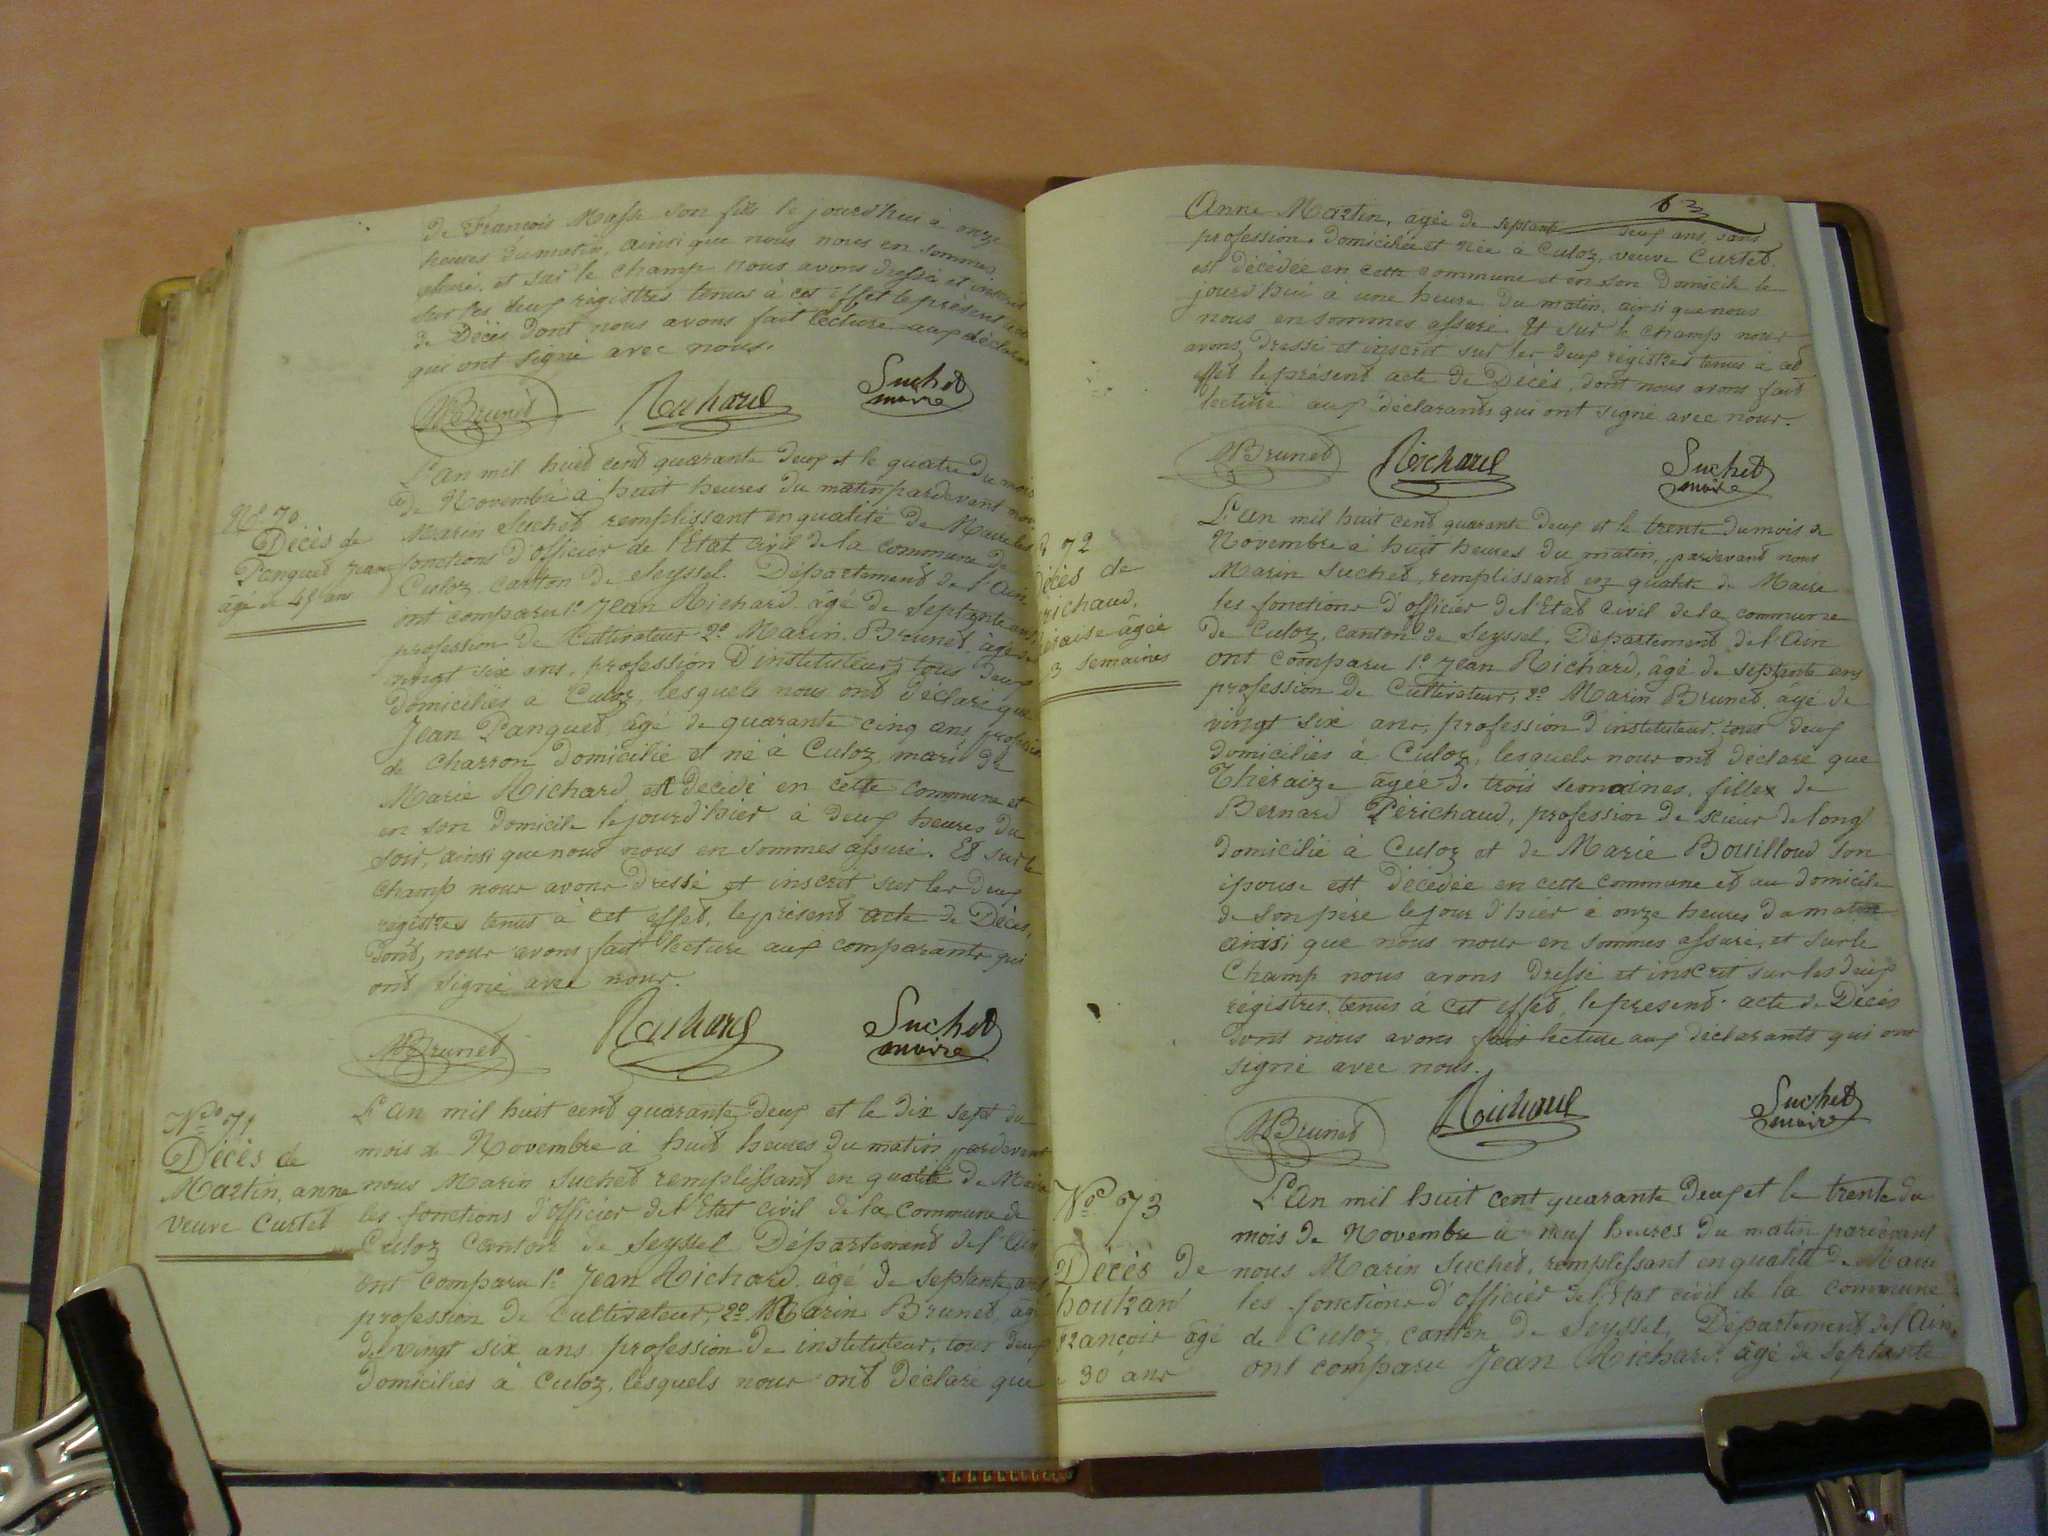 de François Masse son fils le jourd'hui à onze
heures du matin, ainsi que nous nous en sommes
assuré, et sur le champ nous avons dressé et inscrit
sur les deux régistres tenus à cet effet le présent acte
de Décès dont nous avons fait lecture aux déclarans
qui ont signé avec nous.
MBrunet Richard Suchet
maire
N° 70
Décès de
Panquet Jean
âgé de 45 ans
L'an mil huit cent quarante deux et le quatre du mois
de Novembre à huit heures du matin pardevant nous
Marin Suchet remplissant en qualité de Maire les
fonctions d'officier de l'Etat civil de la commune de
Culoz canton de Seyssel. Département de l'Ain
ont comparu 1° Jean Richard âgé de septante ans
profession de Cultivateur 2° Marin Brunet, âgé de
vingt six ans, profession d'instituteur, tous deux
domiciliés à Culoz, lesquels nous ont déclaré que
Jean Panquet, âgé de quarante cinq ans, profession
de charron domicilié et né à Culoz, mari de
Marie Richard, est décédé en cette commune et
en son domicile le jourd'hier à deux heures du
soir, ainsi que nous nous en sommes assuré. Et sur le
champ nous avons dressé et inscrit sur les deux
régistres tenus à cet effet, le présent acte de Décès,
dont, nous avons fait lecture aux comparants qui
ont signé avec nous.
MBrunet Richard Suchet
maire
N° 71
Décès de
Martin, anne
veuve Curtet
L'an mil huit cent quarante deux et le dix sept du
mois de Novembre à huit heures du matin pardevant
nous Marin Suchet remplissant en qualité de Maire
les fonctions d'officier de l'Etat civil de la commune de
Culoz Canton de Seyssel Département de l'Ain
ont comparu 1° Jean Richard, âgé de septante ans
profession de Cultivateur, 2° Marin Brunet, âgé
de vingt six ans profession de instituteur, tous deux
domiciliés à Culoz, lesquels nous ont déclaré que
63
Anne Martin, âgée de septante deux ans, sans
profession, domiciliée et née à Culoz, veuve Curtet
est décédée en cette commune et en son domicile le
jourd'hui à une heure du matin, ainsi que nous
nous en sommes assuré. Et sur le champ nous
avons dressé et inscrit sur les deux régistres tenus à cet
effet le présent acte de Décès, dont nous avons fait
lecture aux déclarants qui ont signé avec nous.
MBrunet Richard Suchet
maire
72
Décès de
Périchaud,
Théraise âgée
3 semaines
L'an mil huit cent quarante deux et le trente du mois de
Novembre à huit heures du matin, pardevant nous
Marin Suchet, remplissant en qualité de Maire
les fonctions d'officier de l'Etat civil de la commune
de Culoz, canton de Seyssel, Département de l'Ain
ont comparu 1° Jean Richard, âgé de septante ans
profession de Cultivateur, 2° Marin Brunet, âgé de
vingt six ans, profession d'instituteur, tous deux
domiciliés à Culoz, lesquels nous ont déclaré que
Théraize âgée de trois semaines, fille de
Bernard Périchaud, profession de scieur de long
domicilié à Culoz et de Marie Bouilloud son
épouse est décédée en cette commune et au domicile
de son père le jour d'hier à onze heures du matin
ainsi que nous nous en sommes assuré, et sur le
champ nous avons dressé et inscrit sur les deux
régistres, tenus à cet effet, le présent acte de Décès
dont nous avons fait lecture aux déclarants qui ont
signé avec nous.
MBrunet Richard Suchet
maire
N° 73
Décès de
François âgé
30 ans
L'an mil huit cent quarante deux et le trente du
mois de Novembre à neuf heures du matin pardevant
nous Marin Suchet, remplissant en qualité de Maire
les fonctions d'officier de l'Etat civil de la commune
de Culoz, canton de Seyssel, Département de l'Ain,
ont comparu Jean Richard, âgé de septante